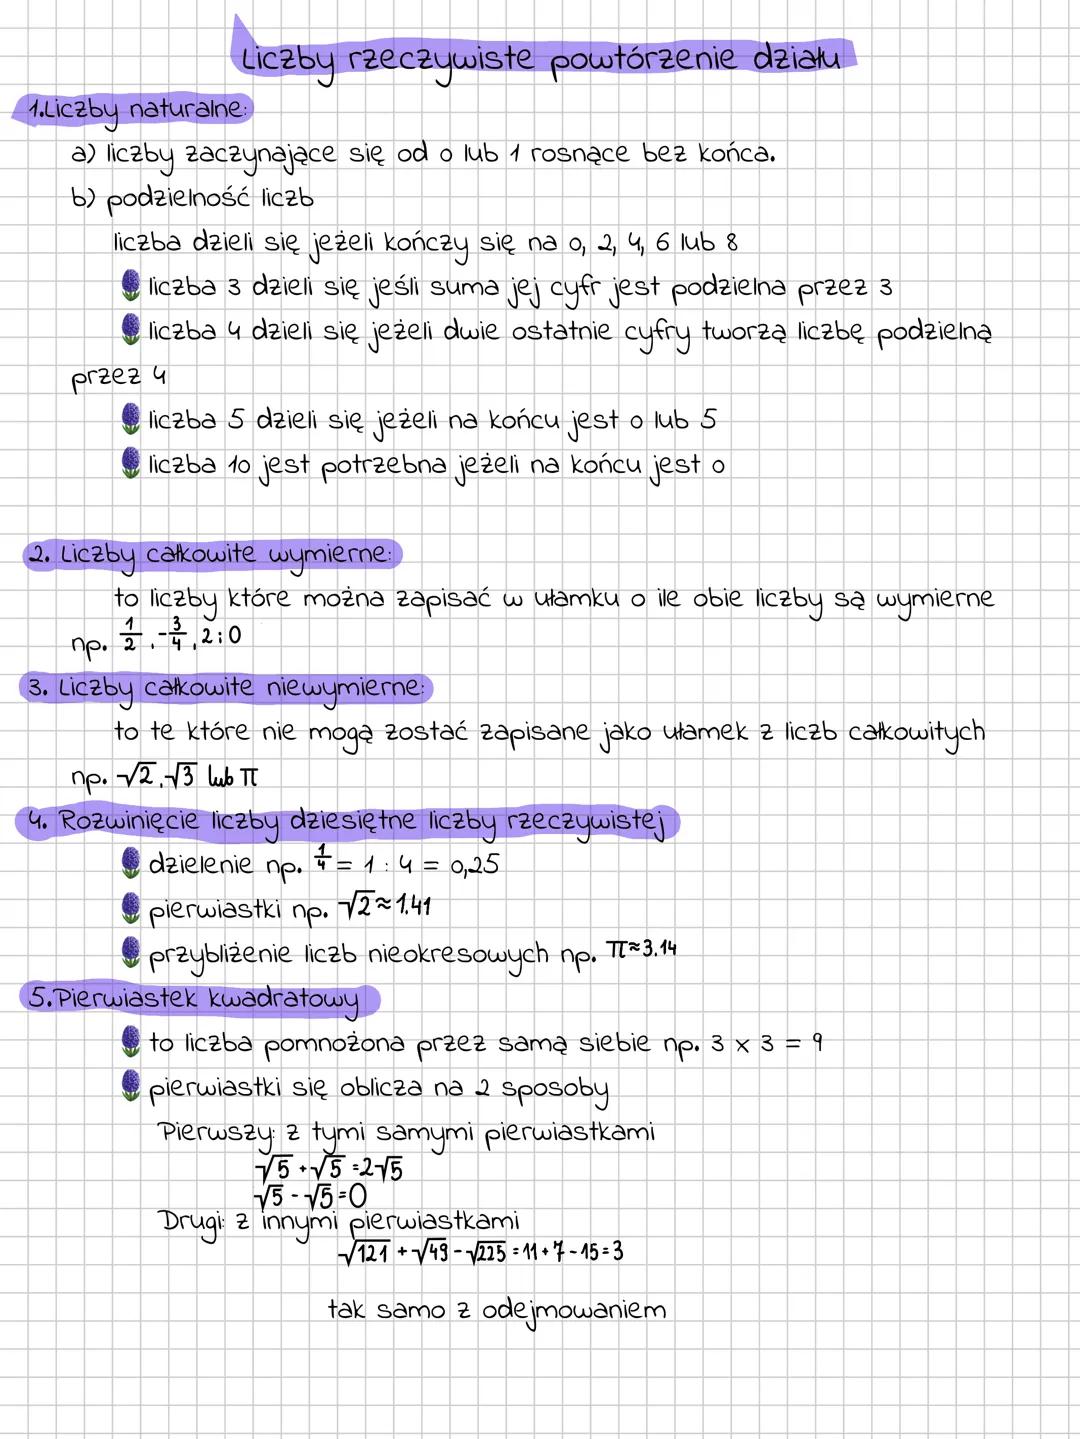 Liczby rzeczywiste powtórzenie działu
1.Liczby naturalne:
a) liczby zaczynające się od 0 lub 1 rosnące bez końca.
b) podzielność liczb
liczba dzieli się jeżeli kończy się na 0, 2, 4, 6 lub 8
liczba 3 dzieli się jeśli suma jej cyfr jest podzielna przez 3
liczba 4 dzieli się jeżeli dwie ostatnie cyfry tworzą liczbę podzielną
przez 4
liczba 5 dzieli się jeżeli na końcu jest 0 lub 5
liczba 10 jest potrzebna jeżeli na końcu jest 0
2. Liczby całkowite wymierne:
to liczby które można zapisać w ułamku o ile obie liczby są wymierne
np. 1/2, -3/4, 2:0
3. Liczby całkowite niewymierne:
to te które nie mogą zostać zapisane jako ułamek z liczb całkowitych
np. √2, √3 lub π
4. Rozwinięcie liczby dziesiętne liczby rzeczywistej
dzielenie np. 1/4 = 1 : 4 = 0,25
pierwiastki np. √2≈1.41
przybliżenie liczb nieokresowych np. π≈3.14
5.Pierwiastek kwadratowy
to liczba pomnożona przez samą siebie np. 3 x 3 = 9
pierwiastki się oblicza na 2 sposoby
Pierwszy: z tymi samymi pierwiastkami
√5 + √5 = 2√5
√5 - √5 = 0
Drugi: z innymi pierwiastkami
√121 + √49 - √225 = 11 + 7 - 15 = 3
tak samo z odejmowaniem